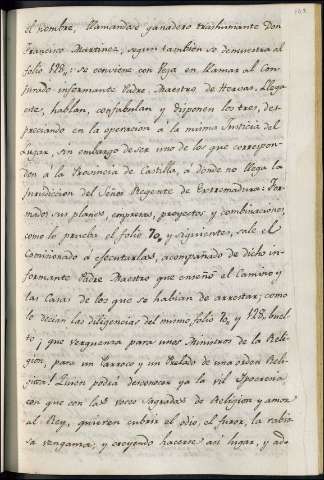 el nombre, llamandose ganadero trashumante Don
Francisco Martinez; segun tambien se demuestra al
folio 128,,: se conviene con Veja en llamar al Con-
jurado informante Padre Maestro de Hervas. Llega
este, hablan, confabulan y disponen los tres, des-
preciando en la operacion a la misma Justicia del
Lugar, sin embargo de ser uno de los que correspon-
den a la Provincia de Castilla, a donde no llega la
Jurisdiccion del Señor Regente de Extremadura: For-
mados sus planes, empresas, proyectos y combinaciones,
como lo prueba el folio 70,, y siguientes, sale el
Comisionado a efectuarlas, acompañado de dicho in-
formante Padre Maestro que enseñó el Camino y
las Casas de los que se habian de arrestar; como
lo decian las diligencias del mismo folio 70, y 128, buel-
to; que verguenza para unos Ministros de la Reli-
gion, para un Parroco y un Prelado de una orden Reli-
giosa! Quien podrá desconocer ya la vil Ipocresia,
con que con las voces sagradas de Religion y amor
al Rey, quieren cubrir el odio, el furor, la rabio-
sa venganza; y creyendo hacerse asi lugar, y ado-